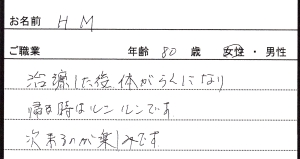 お名前 H M
ご職業 年齢 80 歳 女性・男性
治療した後、体がらくになり
帰る時はルンルンです
次来るのが楽しみです